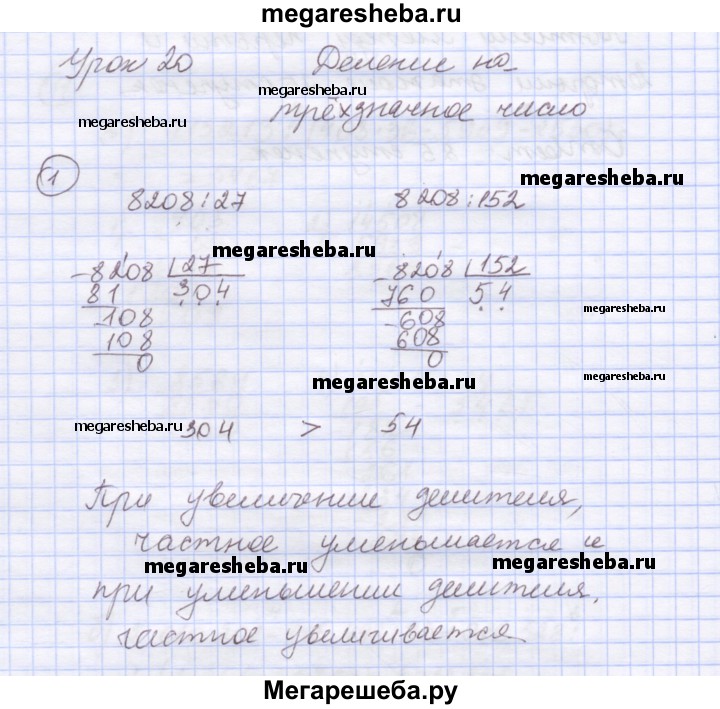 megaresheba.ru
Урок 20 Деление на
megaresheba.ru
трёхзначное число
megaresheba.ru
1
megaresheba.ru
8208:27 8208:152
megaresheba.ru
-8208 27 -8208 152
81 304 760 54
megaresheba.ru
-108 -608
108 608
0 0
megaresheba.ru
megaresheba.ru
304 > 54
При увеличении делителя,
частное уменьшается и
megaresheba.ru megaresheba.ru
при уменьшении делителя,
частное увеличивается
Мегарешеба.ру